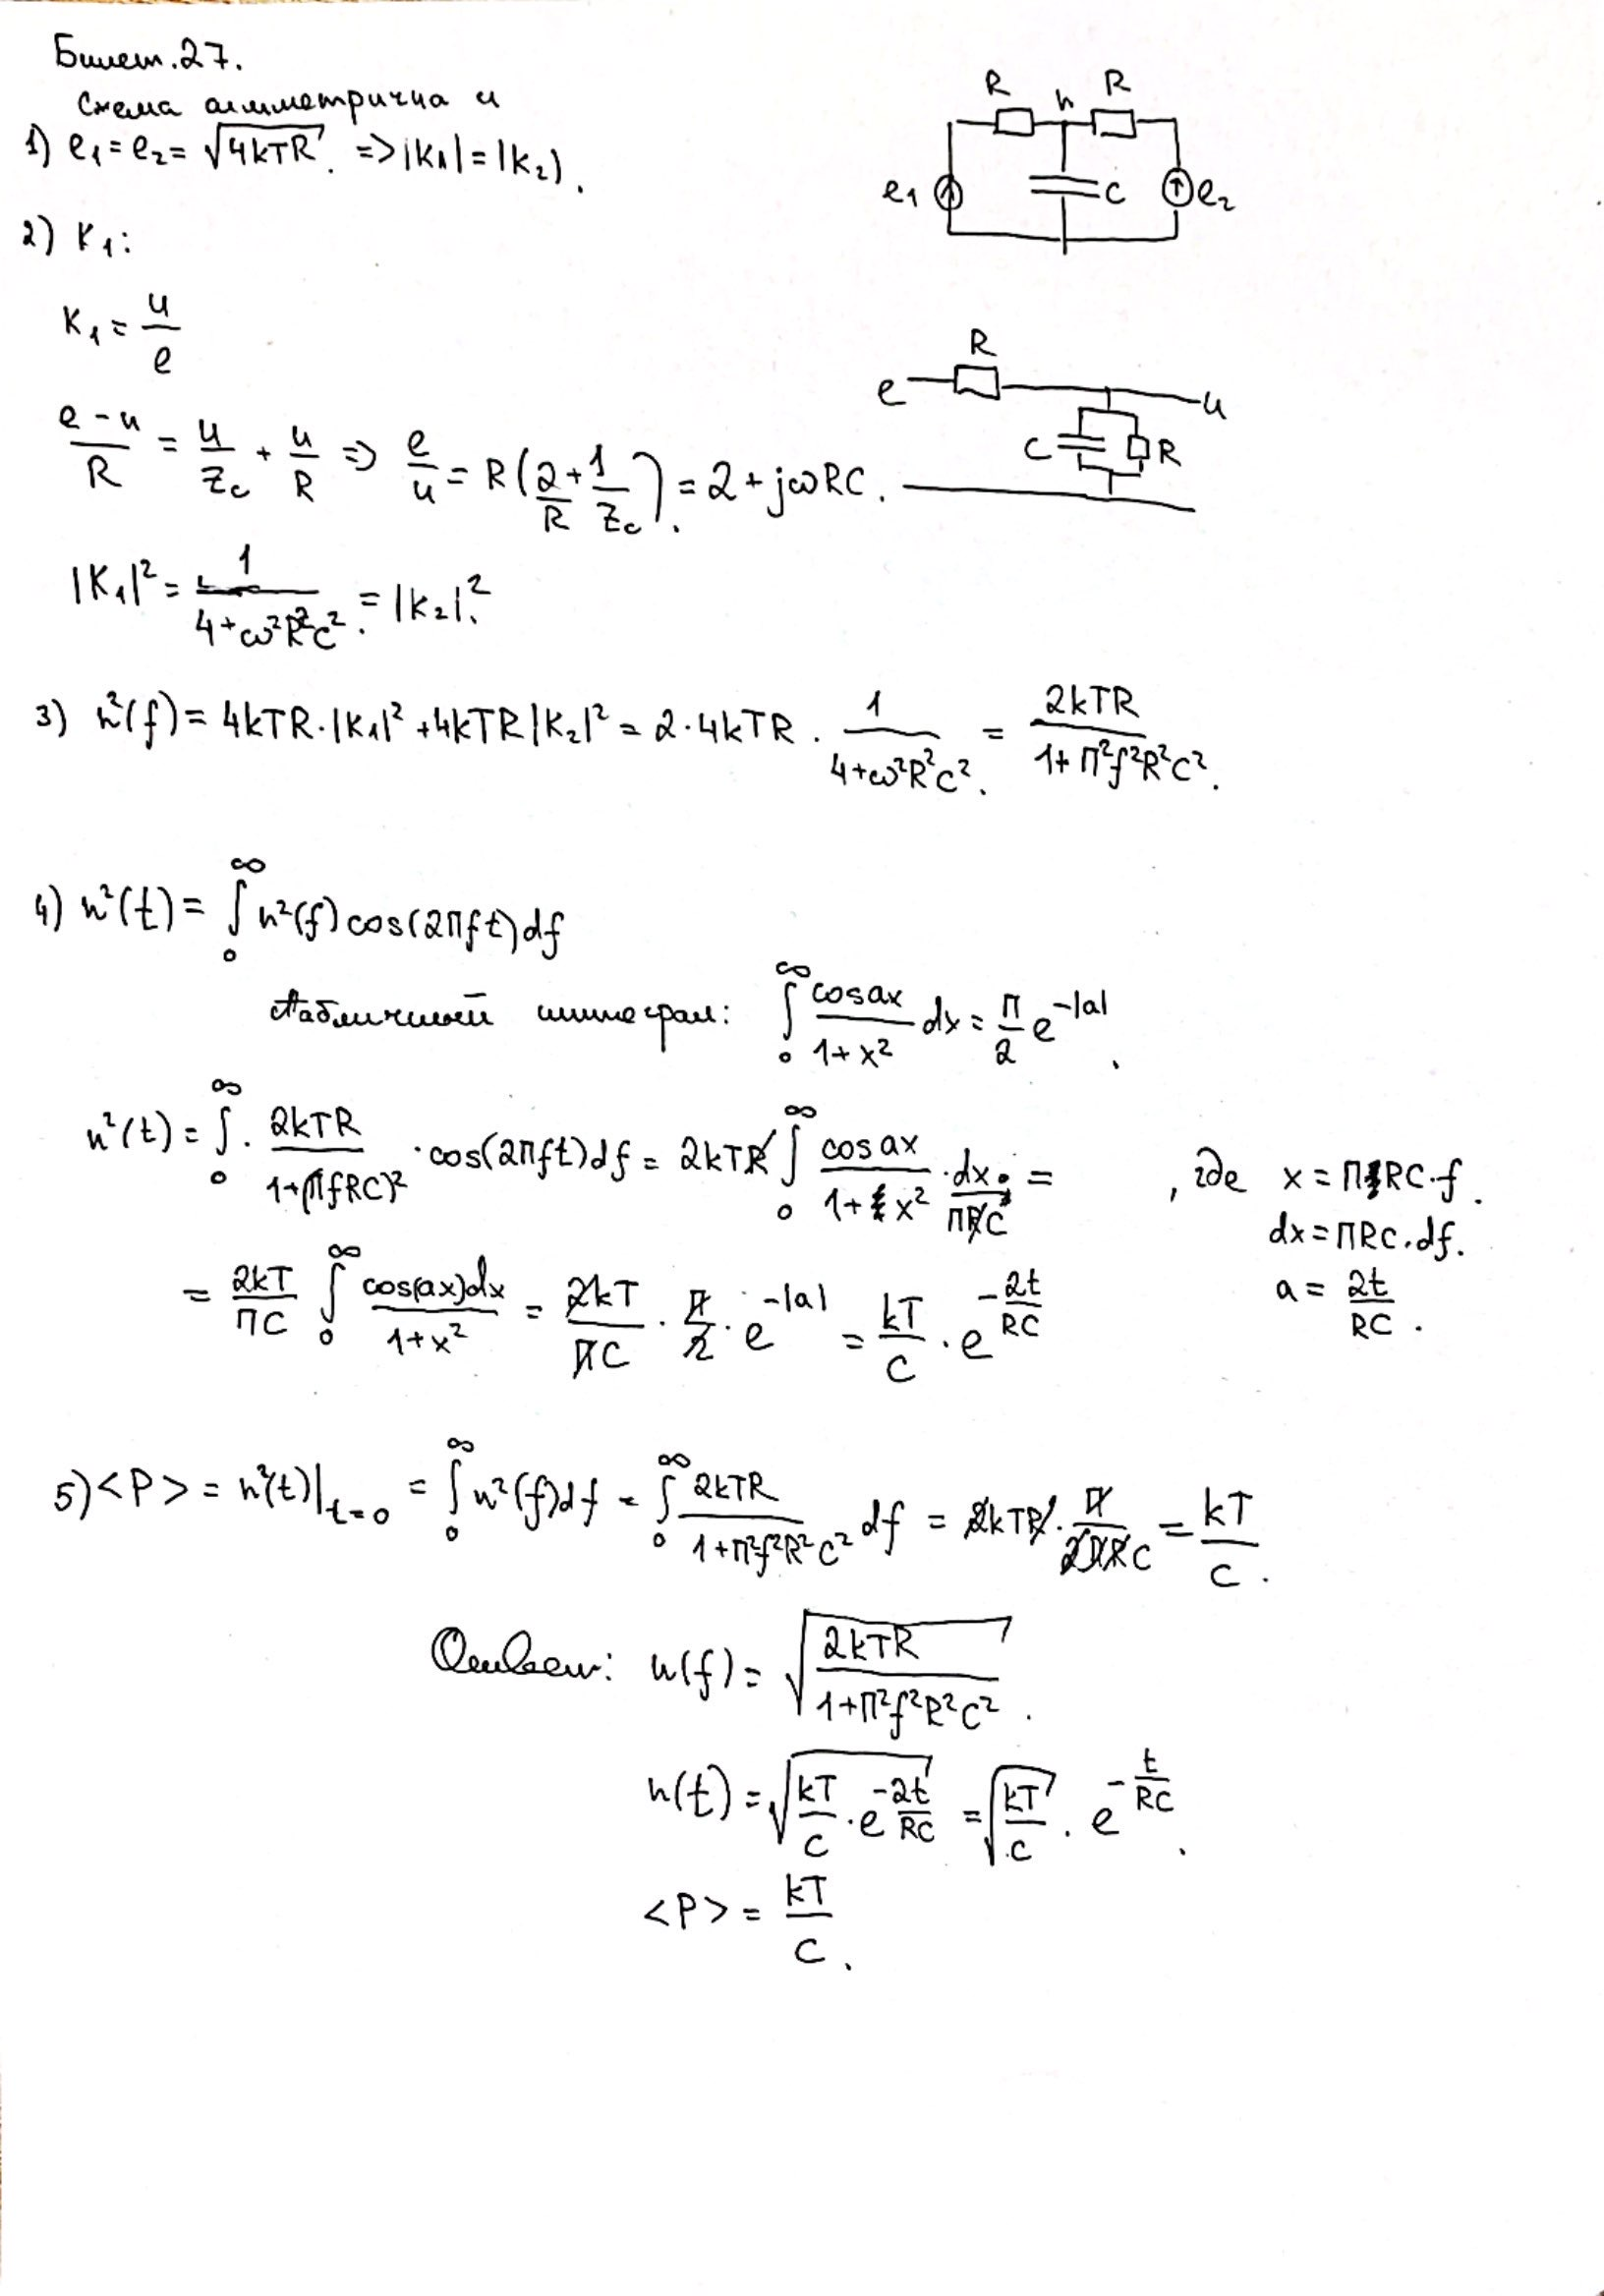 Билет.27.
Схема симметрична и
1) e₁=e₂= √4kTR. => |K₁|=|K₂|.
R n R
e₁ C e₂
2) K₁:
K₁ = u/e
R
e u
C R
(e-u)/R = u/Z_c + u/R => e/u = R(2/R + 1/Z_c). = 2 + jωRC.
|K₁|² = 1/(4+ω²R²C²). = |K₂|².
3) n²(f) = 4kTR·|K₁|² + 4kTR|K₂|² = 2·4kTR · 1/(4+ω²R²C²). = 2kTR/(1+π²f²R²C²).
4) n²(t) = ∫₀^∞ n²(f) cos(2πft) df
Табличный интеграл: ∫₀^∞ cos ax/(1+x²) dx = π/2 e^(-|a|).
n²(t) = ∫₀^∞ · 2kTR/(1+(πfRC)²) · cos(2πft) df = 2kTR ∫₀^∞ cos ax/(1+x²) · dx/(πRC) = , где x = πRC·f.
dx = πRC·df.
= 2kT/(πC) ∫₀^∞ cos(ax)dx/(1+x²) = 2kT/(πC) · π/2 · e^(-|a|) = kT/C · e^(-2t/RC) a = 2t/RC.
5) <P> = n²(t)|_(t=0) = ∫₀^∞ n²(f)df = ∫₀^∞ 2kTR/(1+π²f²R²C²) df = 2kTR · π/(2πRC) = kT/C.
Ответ: n(f) = √(2kTR/(1+π²f²R²C²)).
n(t) = √(kT/C · e^(-2t/RC)) = √(kT/C) · e^(-t/RC).
<P> = kT/C.